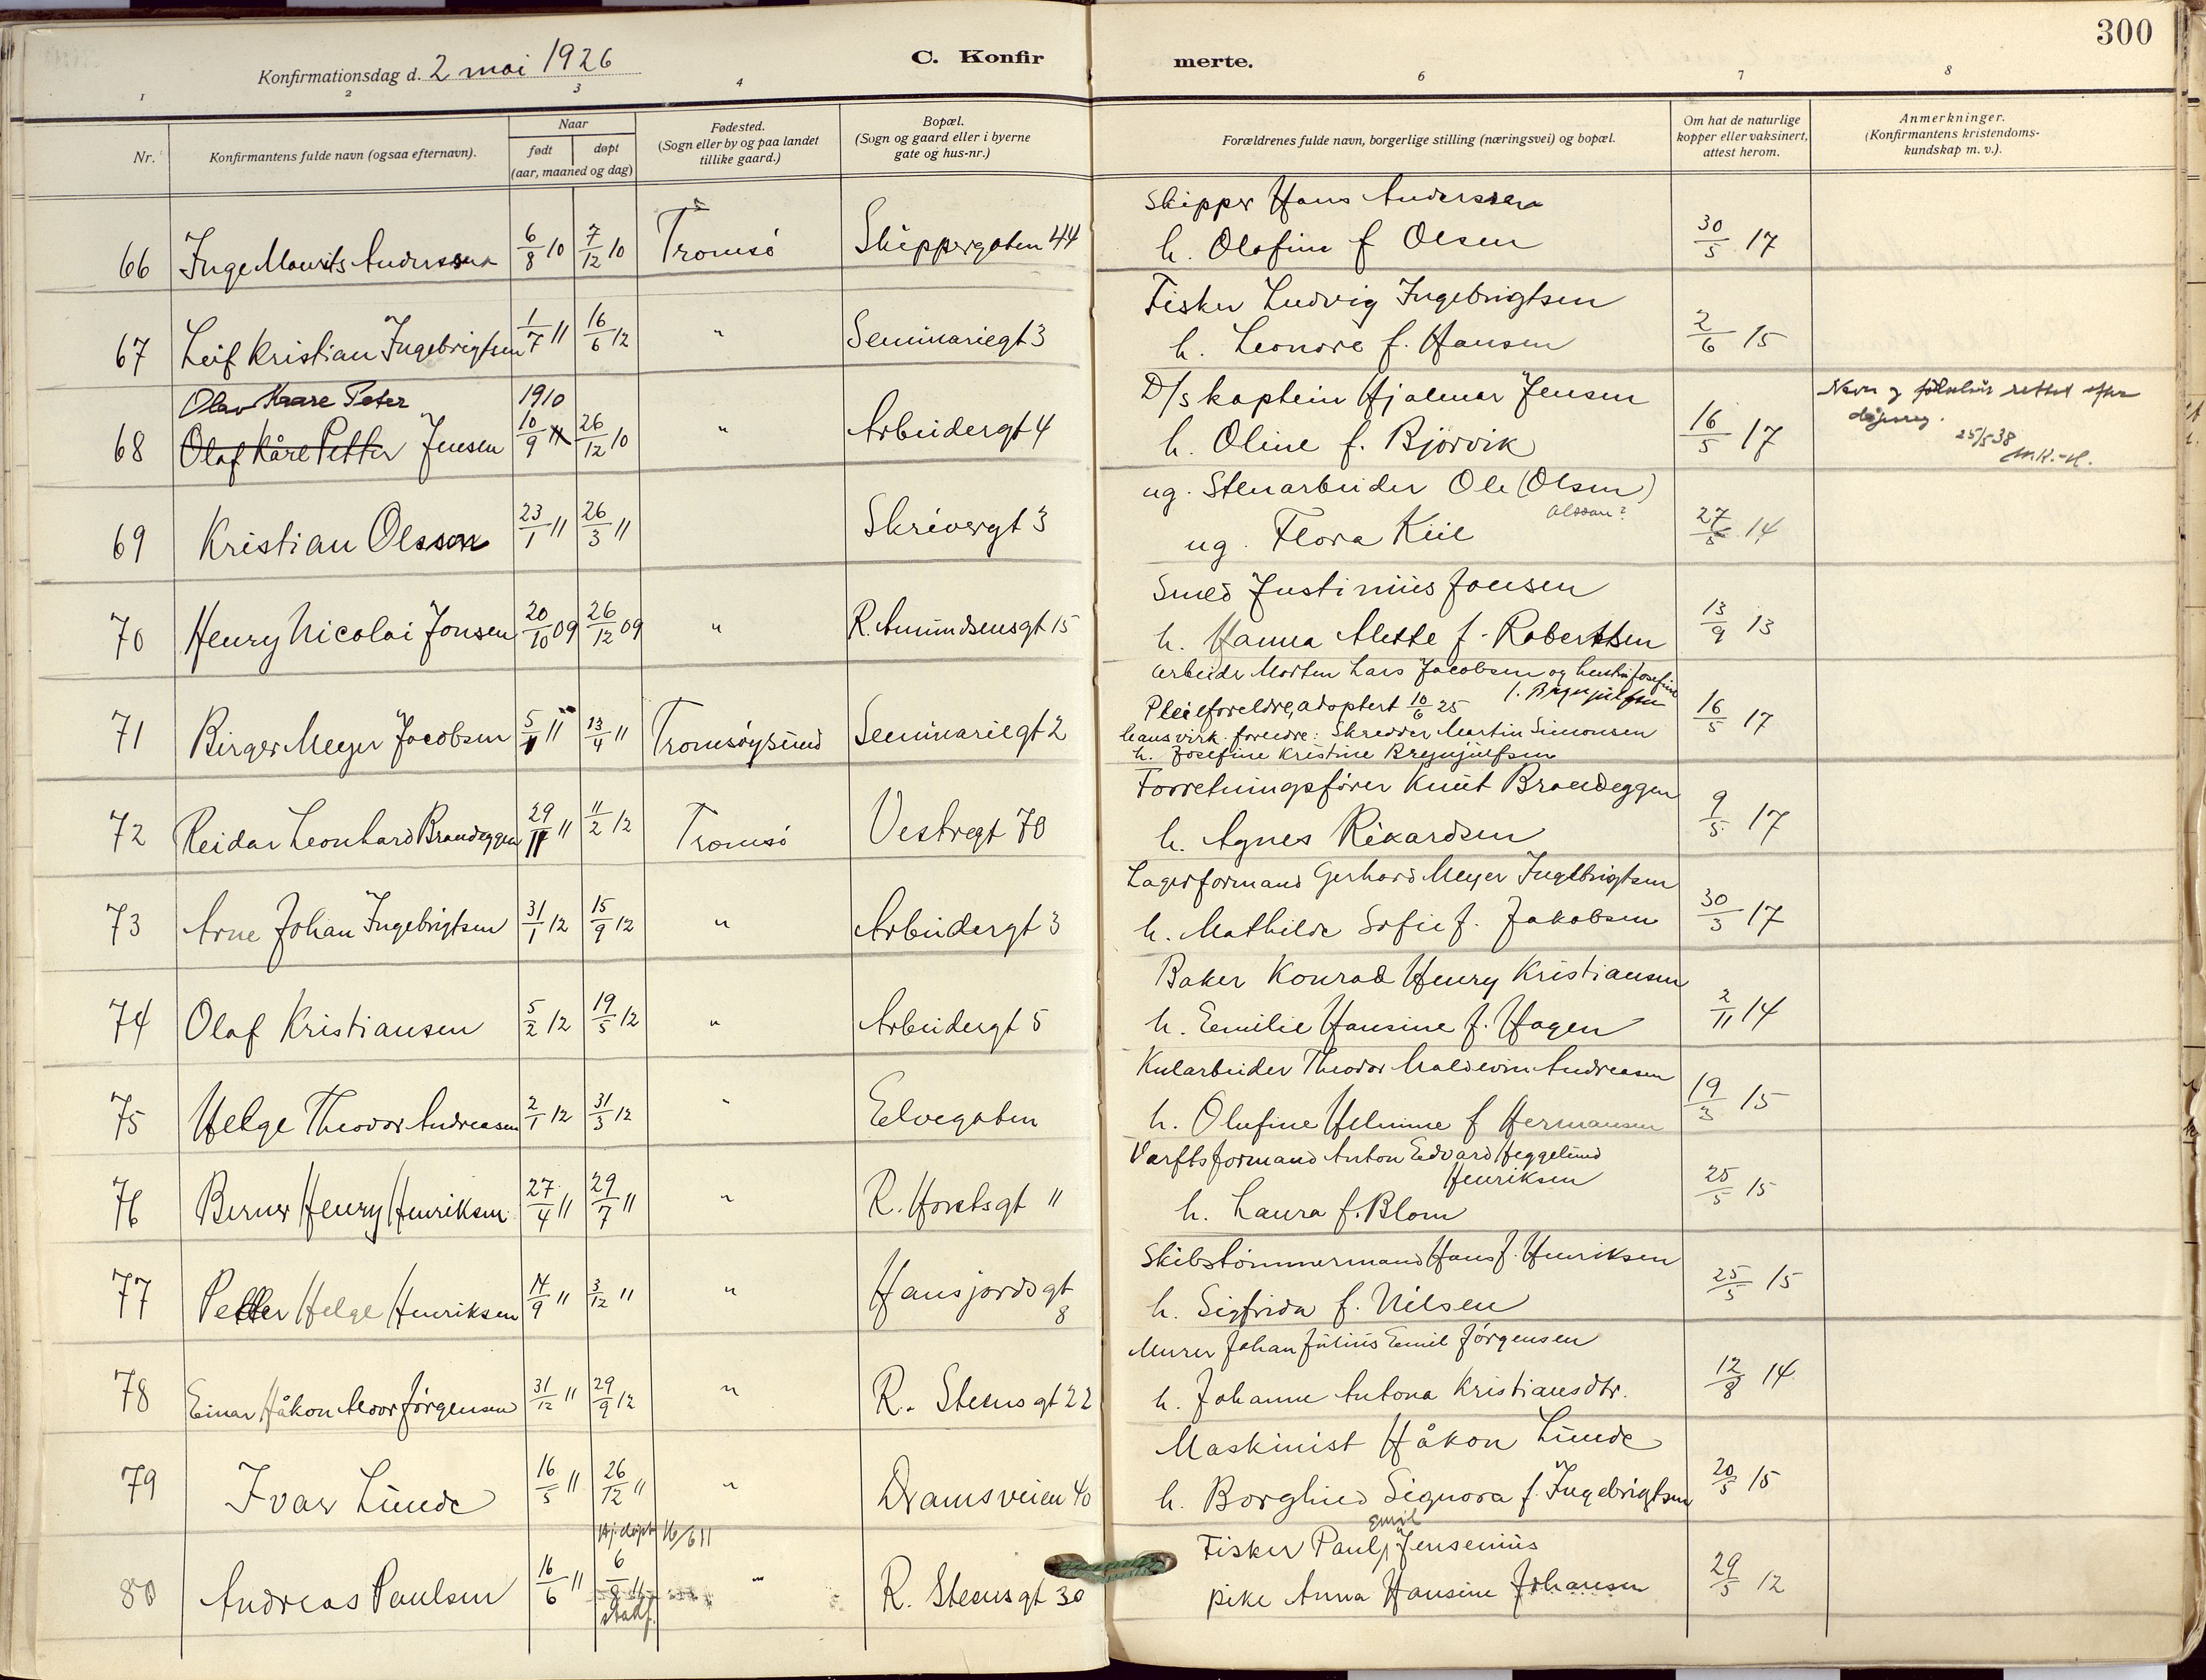 300
Konfirmationsdag d. 2 mai 1926
C. Konfirmerte.
1 2 3 4 6 7 8
Nr.
Konfirmantens fulde navn (ogsaa efternavn).
Naar
født døpt
(aar, maaned og dag)
Fødested.
(Sogn eller by og paa landet
tillike gaard.)
Bopæl.
(Sogn og gaard eller i byerne
gate og hus-nr.)
Forældrenes fulde navn, borgerlige stilling (næringsvei) og bopæl.
Om hat de naturlige
kopper eller vaksinert,
attest herom.
Anmerkninger.
(Konfirmantens kristendoms-
kundskap m. v.).
Skipper Hans Anderssen
66 Inge Mourits Anderssen 6/8 10 7/12 10 Tromsö Skippergaten 44 h. Olofine f Olsen 30/5 17
Fisker Ludvig Ingebrigtsen
67 Leif Kristian Ingebrigtsen 1/7 11 16/6 12 " Seminariegt 3 h. Leonore f. Hansen 2/6 15
Olav Kaare Peter 1910 D/s kaptein Hjalmar Jensen Navn og rettet efter
68 Olaf Kåre Petter Jensen 10/9 11 26/12 10 " Arbeidergt 4 h. Oline f. Bjørvik 16/5 17
25/5 38
M.K.-H.
ug. Stenarbeider Ole (Olsen)
Olsson?
69 Kristian Olsson 23/1 11 26/3 11 Skrivergt 3 ug. Flora Kiil 27/5 14
Smed Justinius Jonsen
70 Henry Nicolai Jonsen 20/10 09 26/12 09 " R. Amundsensgt 15 h. Hanna Alette f. Robertsen 13/9 13
arbeider Morten Lars Jacobsen og hustru Josefine
f. Brynjulfsen
71 Birger Meyer Jacobsen 5/1 11 13/4 11 Tromsøysund Seminariegt 2 Pleieforeldre, adoptert 10/6 25 16/5 17
hans virk. foreldre: Skredder Martin Simonsen
h. Josefine Kristine Brynjulfsen
Forretningsfører Knut Brandeggen
72 Reidar Leonhard Brandeggen 29/11 11 11/2 12 Tromsö Vestregt 70 h. Agnes Rikardsen 9/5 17
Lagerformand Gerhard Meyer Ingebrigtsen
73 Arne Johan Ingebrigtsen 31/1 12 15/9 12 " Arbeidergt 3 h. Mathilde Sofie f. Jakobsen 30/3 17
Baker Konrad Henry Kristiansen
74 Olaf Kristiansen 5/2 12 19/5 12 " Arbeidergt 5 h. Emilie Hansine f. Hagen 2/11 14
Kularbeider Theodor Maldevin Andreasen
75 Helge Theodor Andreasen 2/1 12 31/3 12 " Elvegaten h. Olufine Helmine f Hermansen 19/3 15
Varftsformand Anton Edvard Heggelund
Henriksen
76 Berner Henry Henriksen 27/4 11 29/7 11 " R. Horstsgt 11 h. Laura f. Blom 25/5 15
Skibstømmermand Hans J. Henriksen
77 Petter Helge Henriksen 14/9 11 3/12 11 " Hansjordsgt 8 h. Sigfrida f. Nilsen 25/5 15
Murer Johan Julius Emil Jørgensen
78 Einar Håkon Moor Jørgensen 31/12 11 29/9 12 " R. Steensgt 22 h. Johanne Antona Kristiansdtr. 12/8 14
Maskinist Håkon Lunde
79 Ivar Lunde 16/5 11 26/12 11 " Dramsveien 40 h. Borghild Signora f. Ingebrigtsen 20/5 15
Hj.døpt 16/6 11
Emil
Fisker Paul Jensenius
80 Andreas Paulsen 16/6 11 6/8 11 stadf. " R. Steensgt 30 pike Anna Hansine Johansen 29/5 12